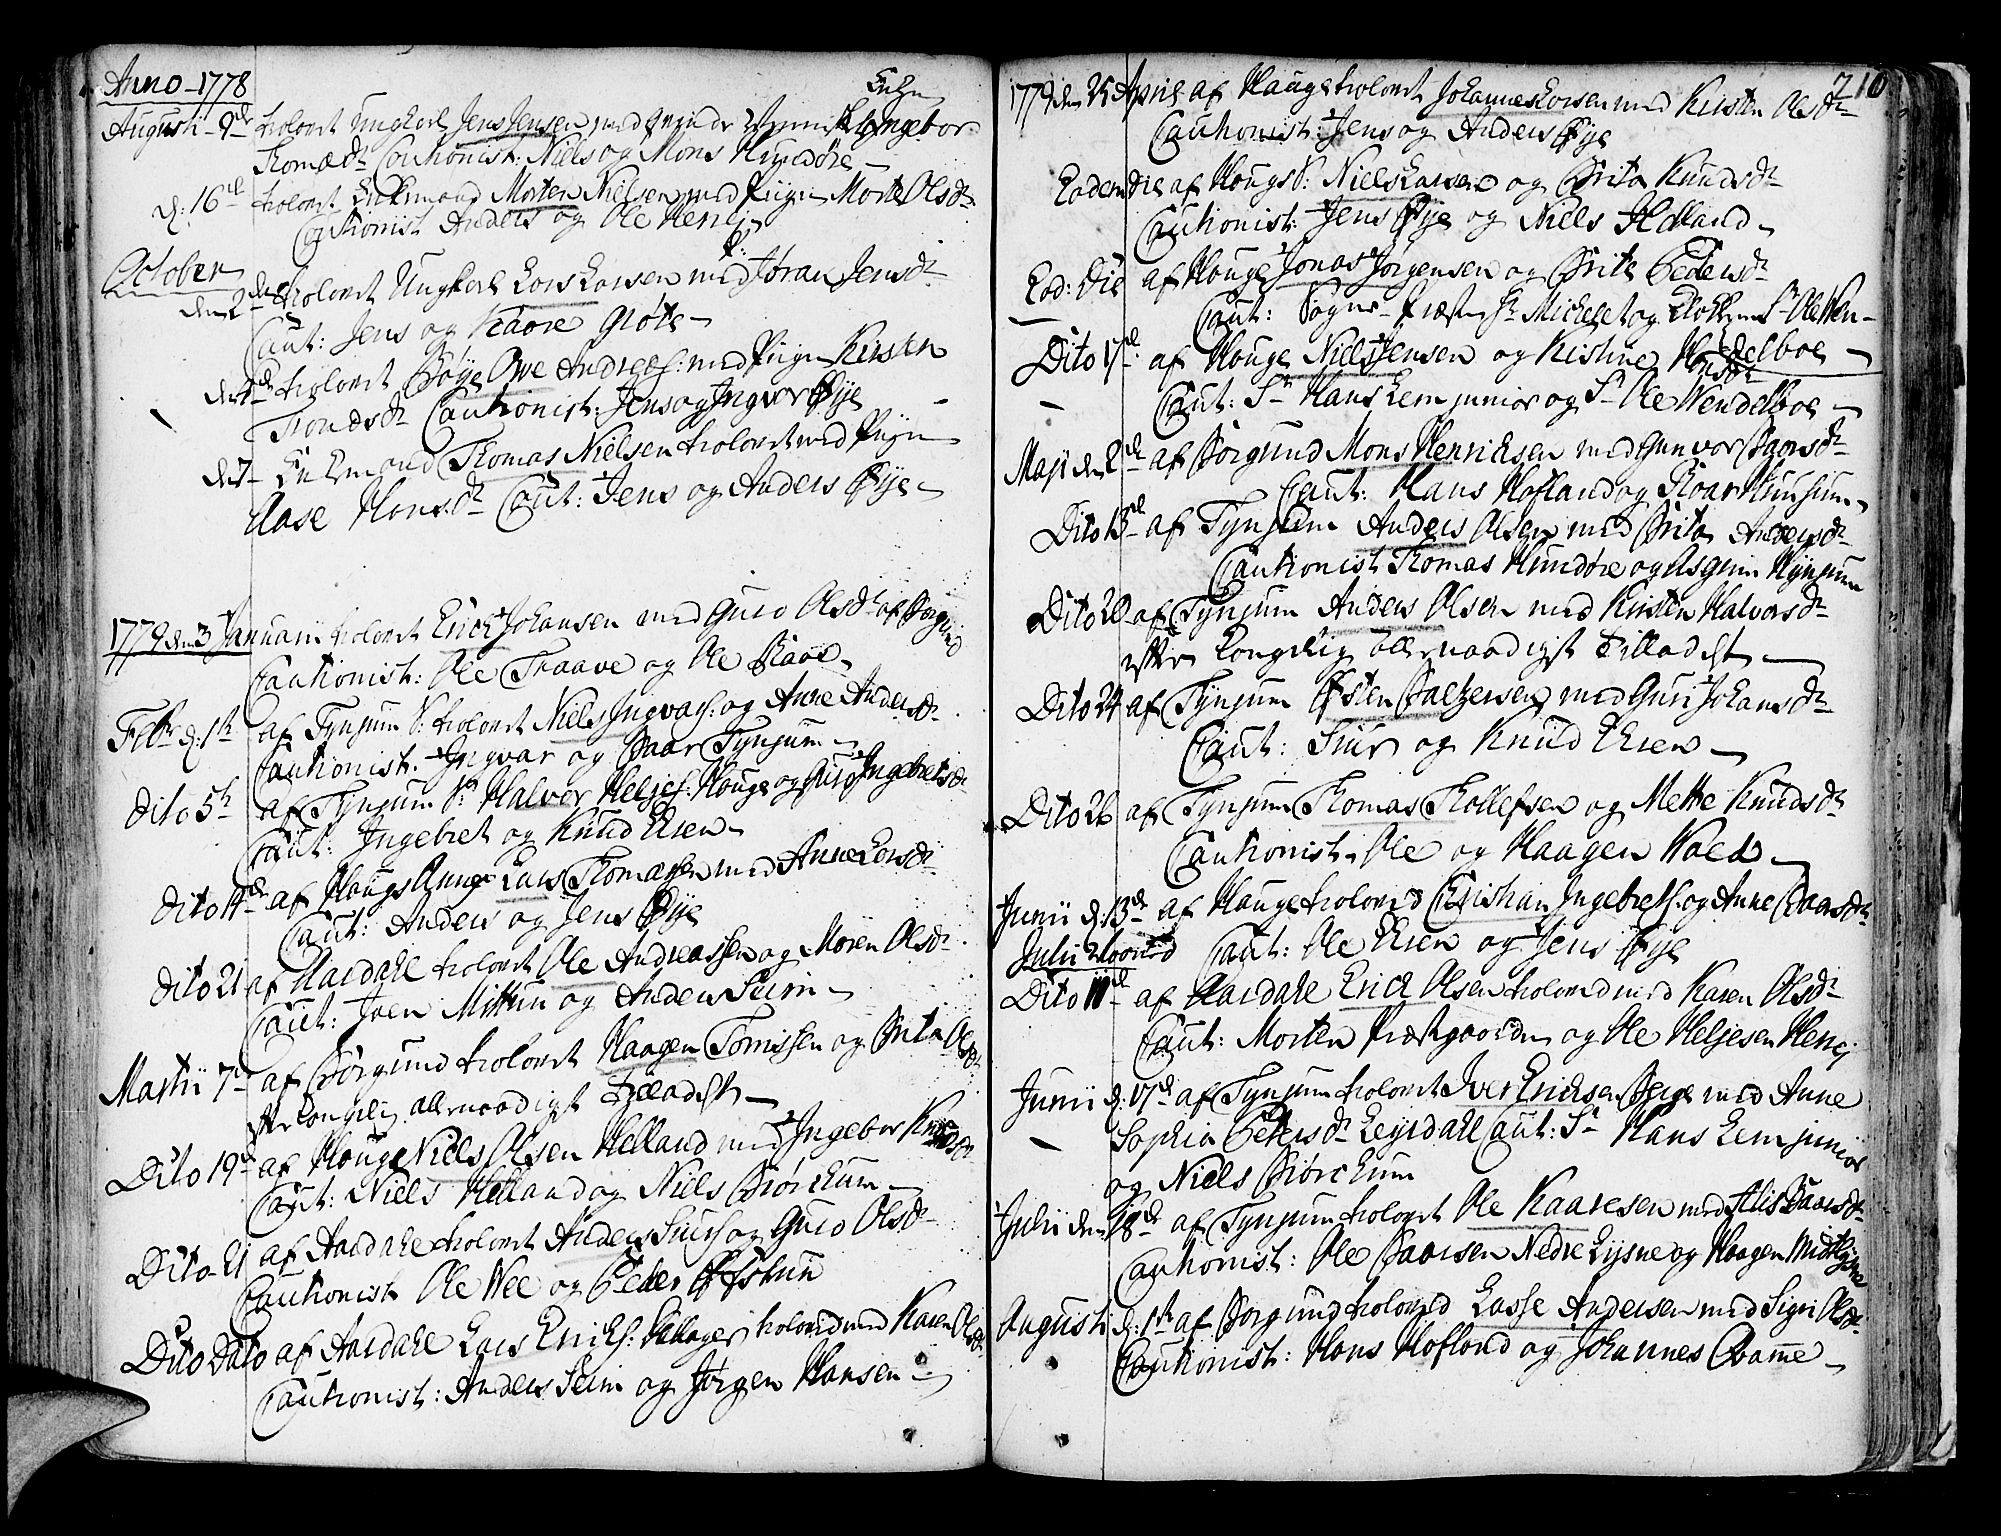 Anno 1778
Augusti 9de trolovet Ungkarl Jens Jensen med Ingebor
Thomæd: Cautionist: Niels og Mons Hundøre
d: 16de trolovet Enkemand Morten Nielsen med Pigen Marte Olsdr
Cautionist Anders og Ole Henj
October
den 2den trolovet Ungkarl Lars Larsen med P: Jøran Jensdr
Caut: Jens og Kaare Grøte
trolovet Ove Andreæs: med Pigen Kirsten
Trondsdr Cautionist: Jens og Ingvor Øye
Enkemand Thomas Nielsen trolovet med Pigen
Aase Hansdr Caut: Jens og Anders Øye
1779 den 3 Januarii trolovet Erich Johansen med Guro Olsdr af Borgund
Cautionist: Ole Traave og Ole
Febr d: 1ste af Tynjum S: trolovet Niels Ingvars: og Anne Andersdr
Cautionist: Ingvar og Baar Tynjum
Dito 5te af Tynjum Sn Halvor Heljes: Houge og Guro Ingebretsdr
Caut: Ingebret og Knud Eren
Dito 14de af Hougs Annex Lars Thomassen med Anne Larsdr
Caut: Anders og Jens Øye
Dito 21 af Aardahl trolovet Ole Andreassen og Maren Olsdr
Caut: Joen Mittun og Anders Seim
Martii 7de af Børgund trolovet Haagen Tomissen og Brita Olsdr
efter Kongelig allernaadigst Tilladelse
Dito 19de af Houge Niels Olsen Helland med Ingebor Knudsdr
Caut: Niels Helland og Niels Biørckum
Dito 21 af Aardahl trolovet Anders Siurs: og Guro Olsdr
Cautionist Ole Wee og Peder
Dito Dato af Aardahl Lars Erichs: trolovid med Karen Olsdr
Cautionist: Anders Seim og Jørgen Hansen
210
1779 den 25 April af Hauge trolovet Johannes Larsen med Kirsten Olsdr
Cautionist: Jens og Anders Øye
Eodem Die af Hougs S: Niels Larsen og Brita Knudsdr
Cautionist: Jens Øye og Niels Helland
Eod: Die af Houge Jonas Jørgensen og Brite Pedersdr
Caut: Sogne-Præsten Hr Michelet og Klokkeren Sr Ole Wen-
delboe
Dito 17de af Houge Niels Jensen og Kistine Hansdr
Caut: Sr Hans Lem junior og Sr Ole Wendelboe
Maji den 2de af Borgund Mons Henrichsen med Gunvor
Caut: Hans Hofland og Roar
Dito 13de af Tynjum Anders Olsen med Brita Andersdr
Cautionist Thomas Hundøre og Asguun Hynjum
Dito 20 af Tynjum Anders Olsen med Kirsten Halvorsdr
efter Kongelig allernaadigst Tilladelse
Dito 24 af Tynjum Østen Baltzersen med Guri Johansdr
Caut: Siur og Knud Eren
Dito 26 af Tynjum Thomas Tollefsen og Mette Knudsdr
Cautionist. Ole og Haagen Wold
Junii d: 13de af Hauge trolovid Christian Ingebrets: og Anne Baarsdr
Julii Caut: Ole Eren og Jens Øye
Dito 11de af Aardahl Erick Olsen trolovid med Karen Olsdr
Caut: Morten Præstgaarden og Ole Heljesen Henj
Junii d: 17de af Tynjum trolovet Iver Ericksen Berge med Anne
Sophia Petersdr Leyrdahl Caut: Sr Hans Lem junior
og Niels Biørckum
Julii den 18de af Tynjum trolovet Ole Kaaresen med Alis Baarsdr
Cautionist: Ole Baarsen Nedre Lysne og Haagen Midtlysne
Augusti d: 1ste af Borgund trolovid Lasse Andersen med Sigri Olsdr
Cautionist: Hans Hofland og Johannes Qvamme